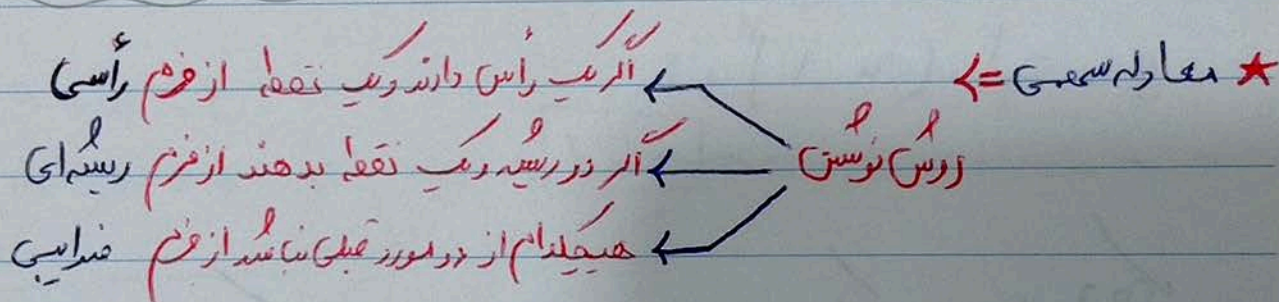 ★ معادله سهمی =>
روش نوشتن
اگر یک رأس دادند و یک نقطه از فرم رأسی
اگر دو ریشه و یک نقطه بدهند از فرم ریشه‌ای
هیچکدام از دو مورد قبلی نباشد از فرم ضرایبی